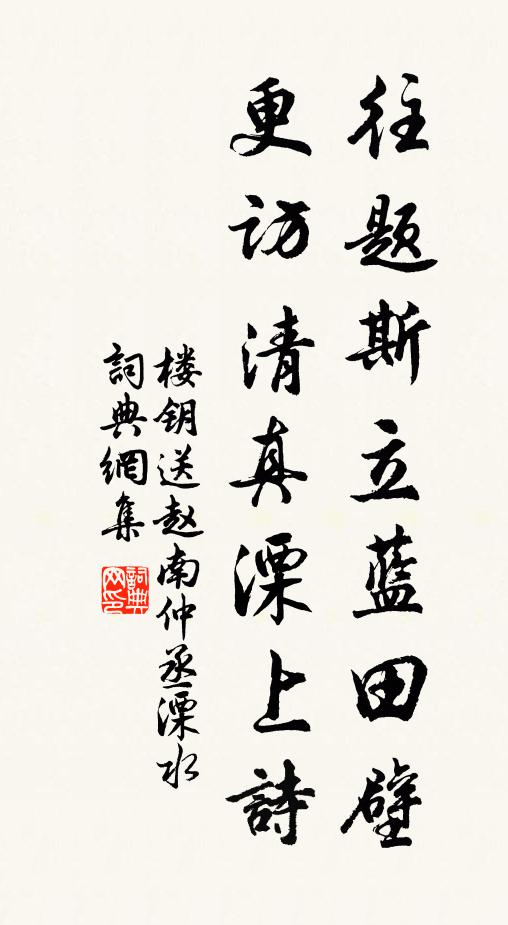 往题斯立蓝田壁
更访清真溧上詩
楼钥送赵南仲丞溧水
詞典網集
詞典網印